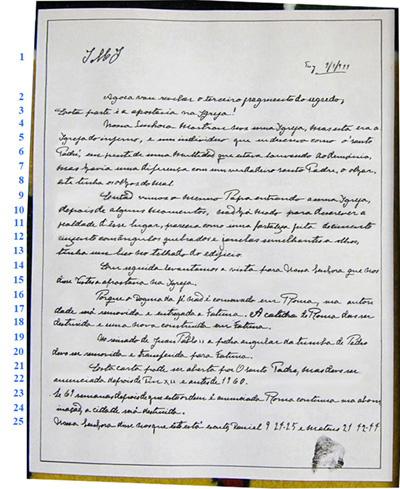 1 JMJ
Tuy 1/9/1944
2 Agora vou revelar o terceiro fragmento do segredo;
3 Esta parte é a apostasia na Igreja!
4 Nossa Senhora mostrou-nos uma Igreja, mas esta era a
5 Igreja do inferno, e um individuo que descrevo como o santo
6 Padre, em frente de uma multidão que estava louvando ao demónio
7 mas havia uma diferença com um verdadeiro santo Padre, o olhar,
8 este tinha o olhar do mal.
9 Então vimos o mesmo Papa entrando a uma Igreja,
10 depois de alguns momentos, não há modo para descrever a
11 fealdade d'esse lugar, parecia como uma fortaleza feita de cimento
12 cinzento com ângulos quebrados e janelas semelhantes a olhos,
13 tinha um bico no telhado do edificio.
14 Em seguida levantamos a vista para Nossa Senhora que nos
15 disse Vistes a apostasia na Igreja.
16 Porque o Dogma da fé não é conservado em Roma, sua autori
17 dade será removida e entregada a Fatima. A catedral de Roma deve ser
18 destruida e uma nova construida em Fatima.
19 No reinado de Juan Pablo II a pedra angular da tumba de Pedro
20 deve ser removida e transferida para Fatima.
21 Esta carta pode ser aberta por O santo Padre, mas deve ser
22 anunciada depois de Pio XII e antes de 1960.
23 Se 69 semanas depois de que esta ordem é anunciada Roma continua sua abom
24 inação, a cidade será destruida.
25 Nossa Senhora disse-nos que isto está escrito, Daniel 9 24-25 e Mateus 21 42-44